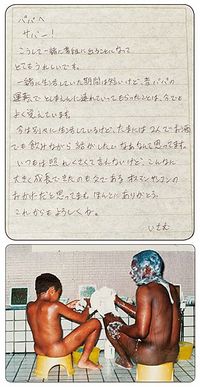 パパへ
サバー！
こうして一緒に書籍に出ることになって
とてもうれしいです。
一緒に生活していた期間は短いけど、昔パパの
運転で としまえんに連れていってもらったことは、今でも
よく覚えています。
今は別々に生活しているけど、たまには 2人で お酒
でも飲みながら 話がしたいなぁなんて思ってます。
いつもは照れくさくて言わないけど、こんなに
大きく成長できたのも父である オスマン・サンコンの
おかげだと思ってます。ほんとにありがとう。
これからもよろしくね。
いさむ